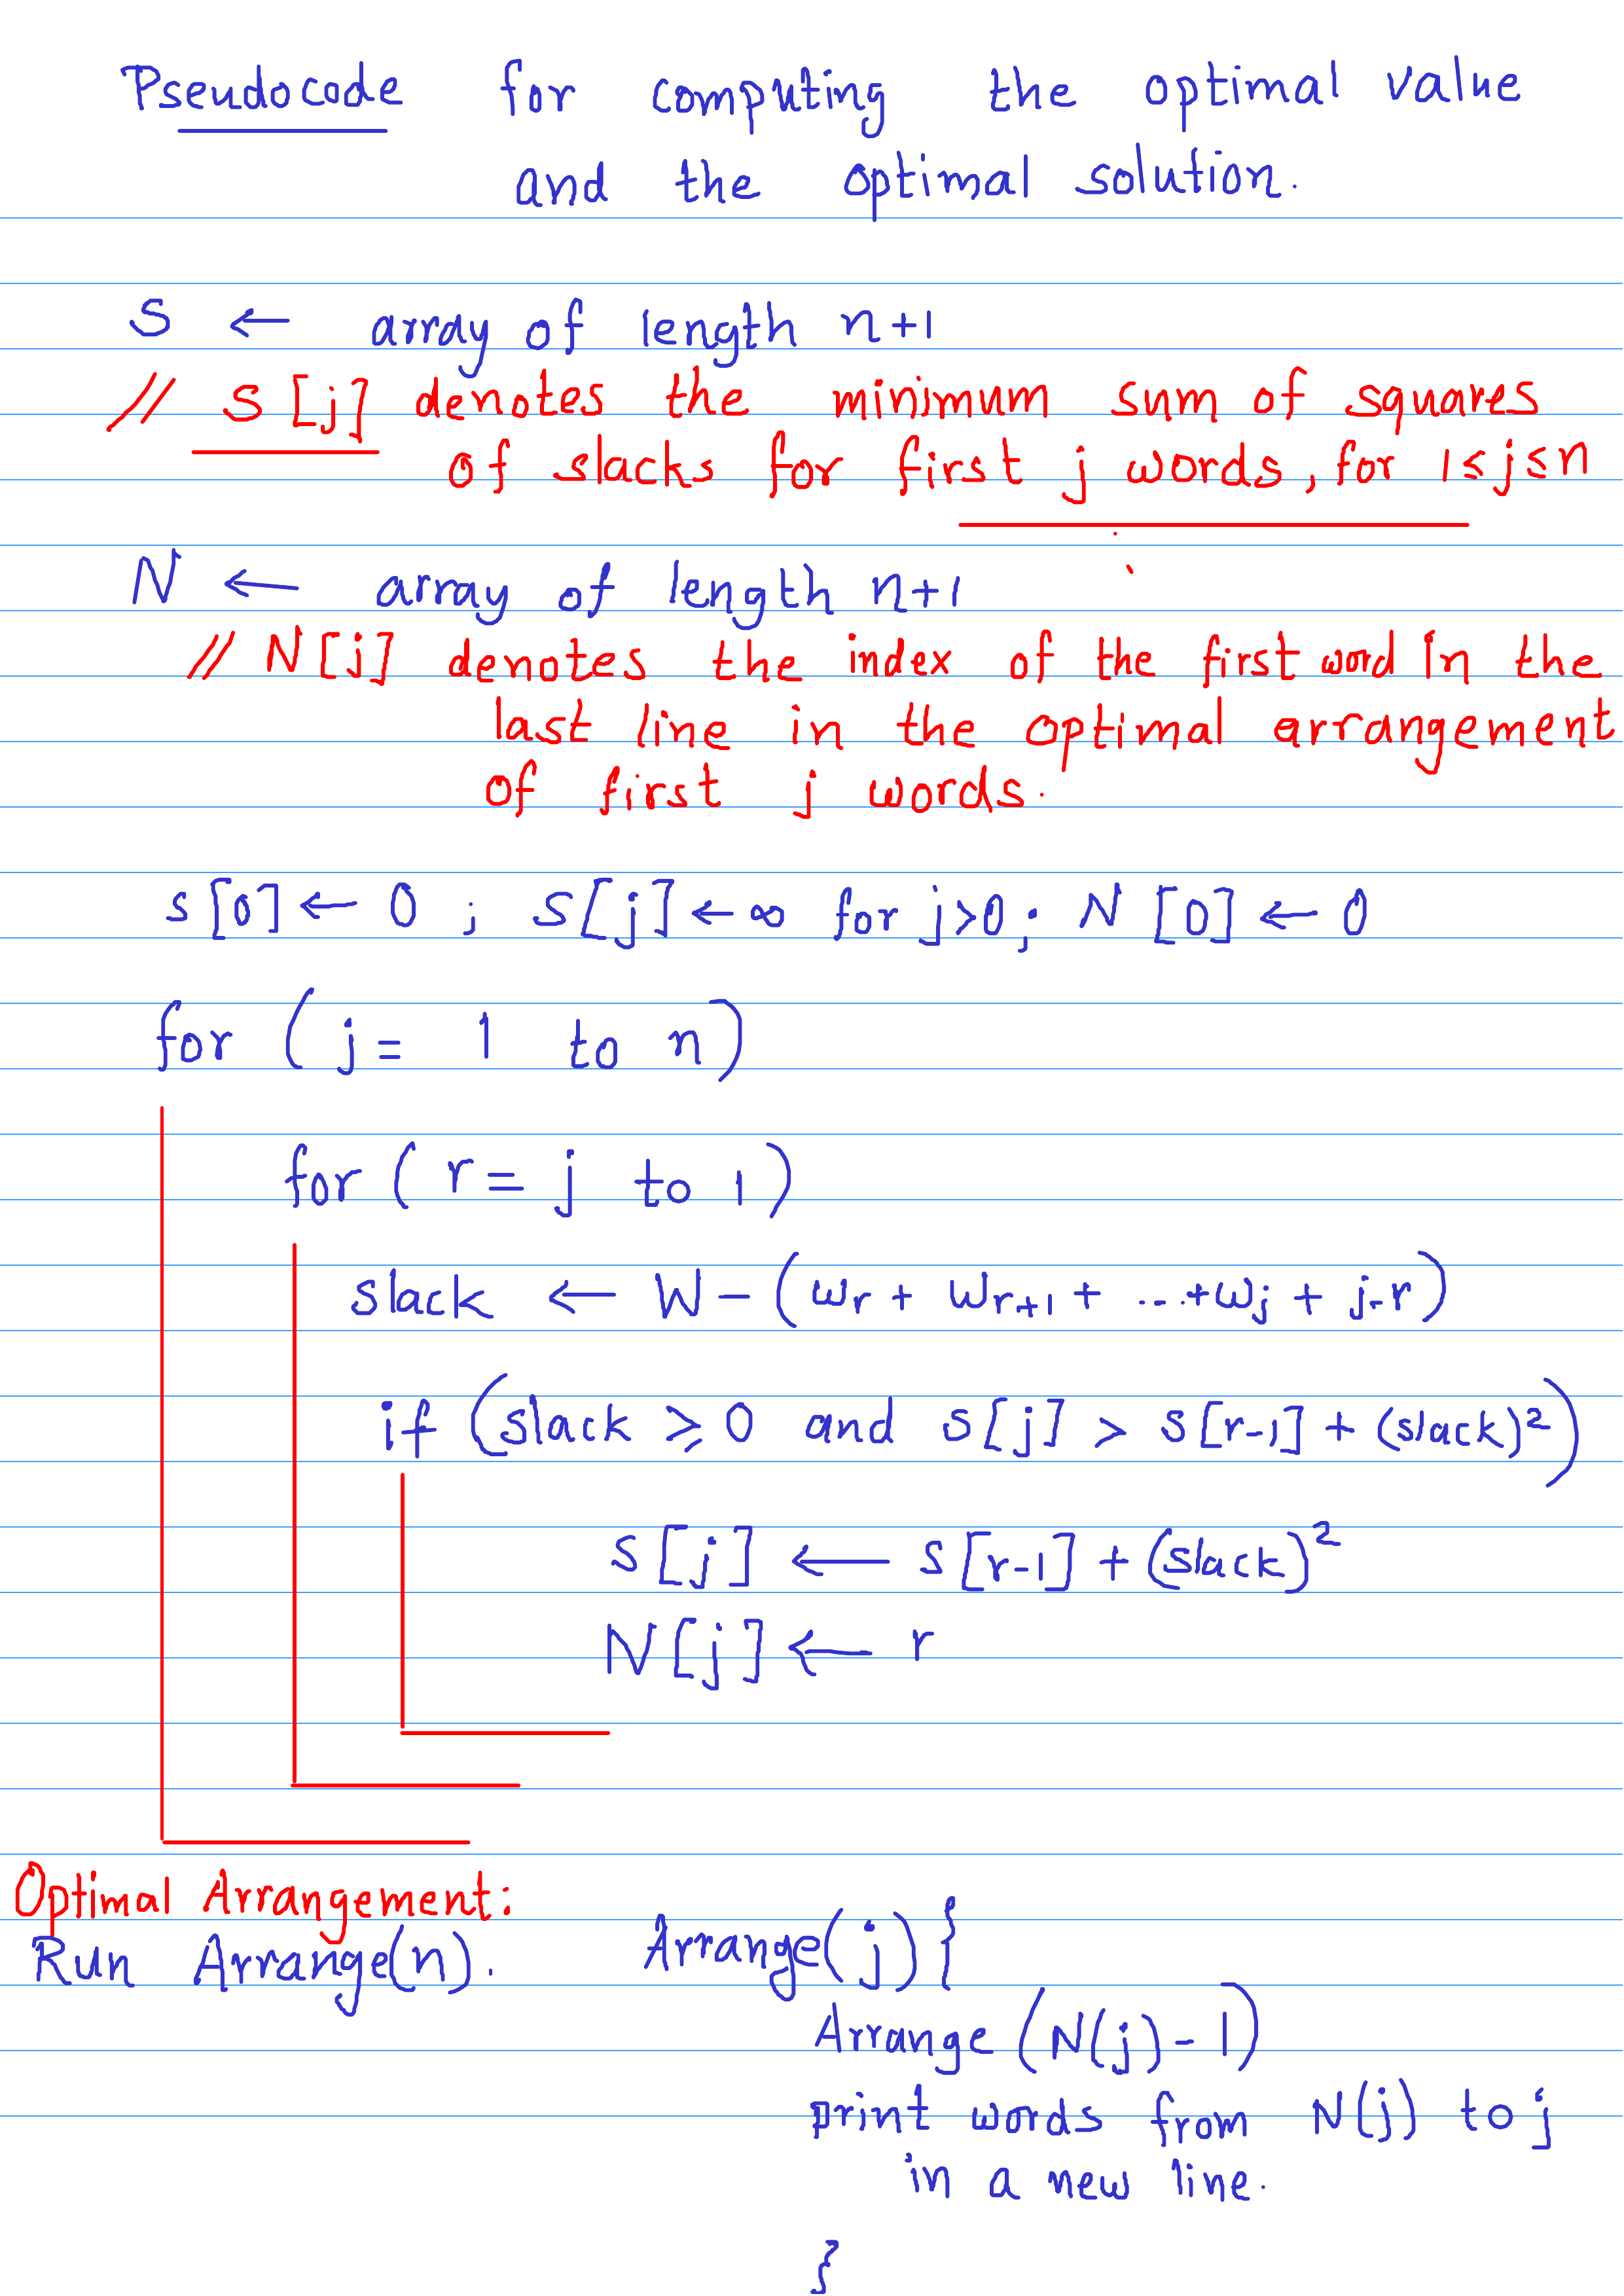 Pseudocode for computing the optimal value
and the optimal solution.
S ← array of length n+1
// S[j] denotes the minimum sum of squares
of slacks for first j words, for 1≤j≤n
N ← array of length n+1
// N[j] denotes the index of the first word in the
last line in the optimal arrangement
of first j words.
S[0] ← 0 ; S[j] ← ∞ for j>0; N[0] ← 0
for (j= 1 to n)
for (r= j to 1)
slack ← W - (wr + wr+1 + ... + wj + j-r)
if (slack ⩾ 0 and S[j] > S[r-1] + (slack)²)
S[j] ← S[r-1] + (slack)²
N[j] ← r
Optimal Arrangement:
Run Arrange(n).
Arrange(j) {
Arrange(N(j)-1)
print words from N(j) to j
in a new line.
}